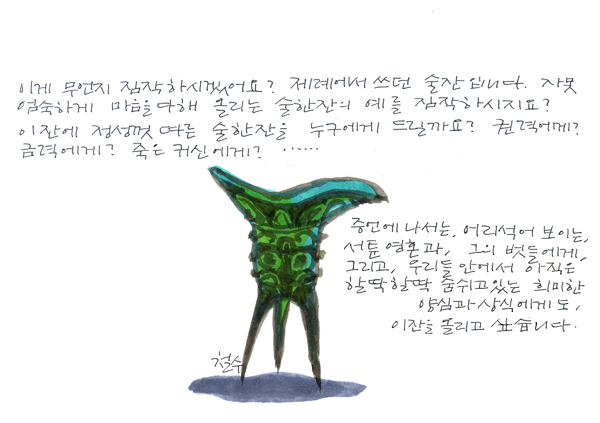 이게 무언지 짐작하시겠어요? 제례에서 쓰던 술잔입니다. 자못
엄숙하게 마음을 다해 올리는 술한잔의 예를 짐작하시지요?
이잔에 정성껏 따른 술한잔을 누구에게 드릴까요? 권력에게?
금력에게? 죽은 귀신에게? ······
증언에 나서는, 어리석어 보이는,
서툰 영혼과, 그의 벗들에게,
그리고, 우리들 안에서 아직은
할딱할딱 숨쉬고있는 희미한
양심과 상식에게도,
이잔을 올리고 싶습니다.
철수